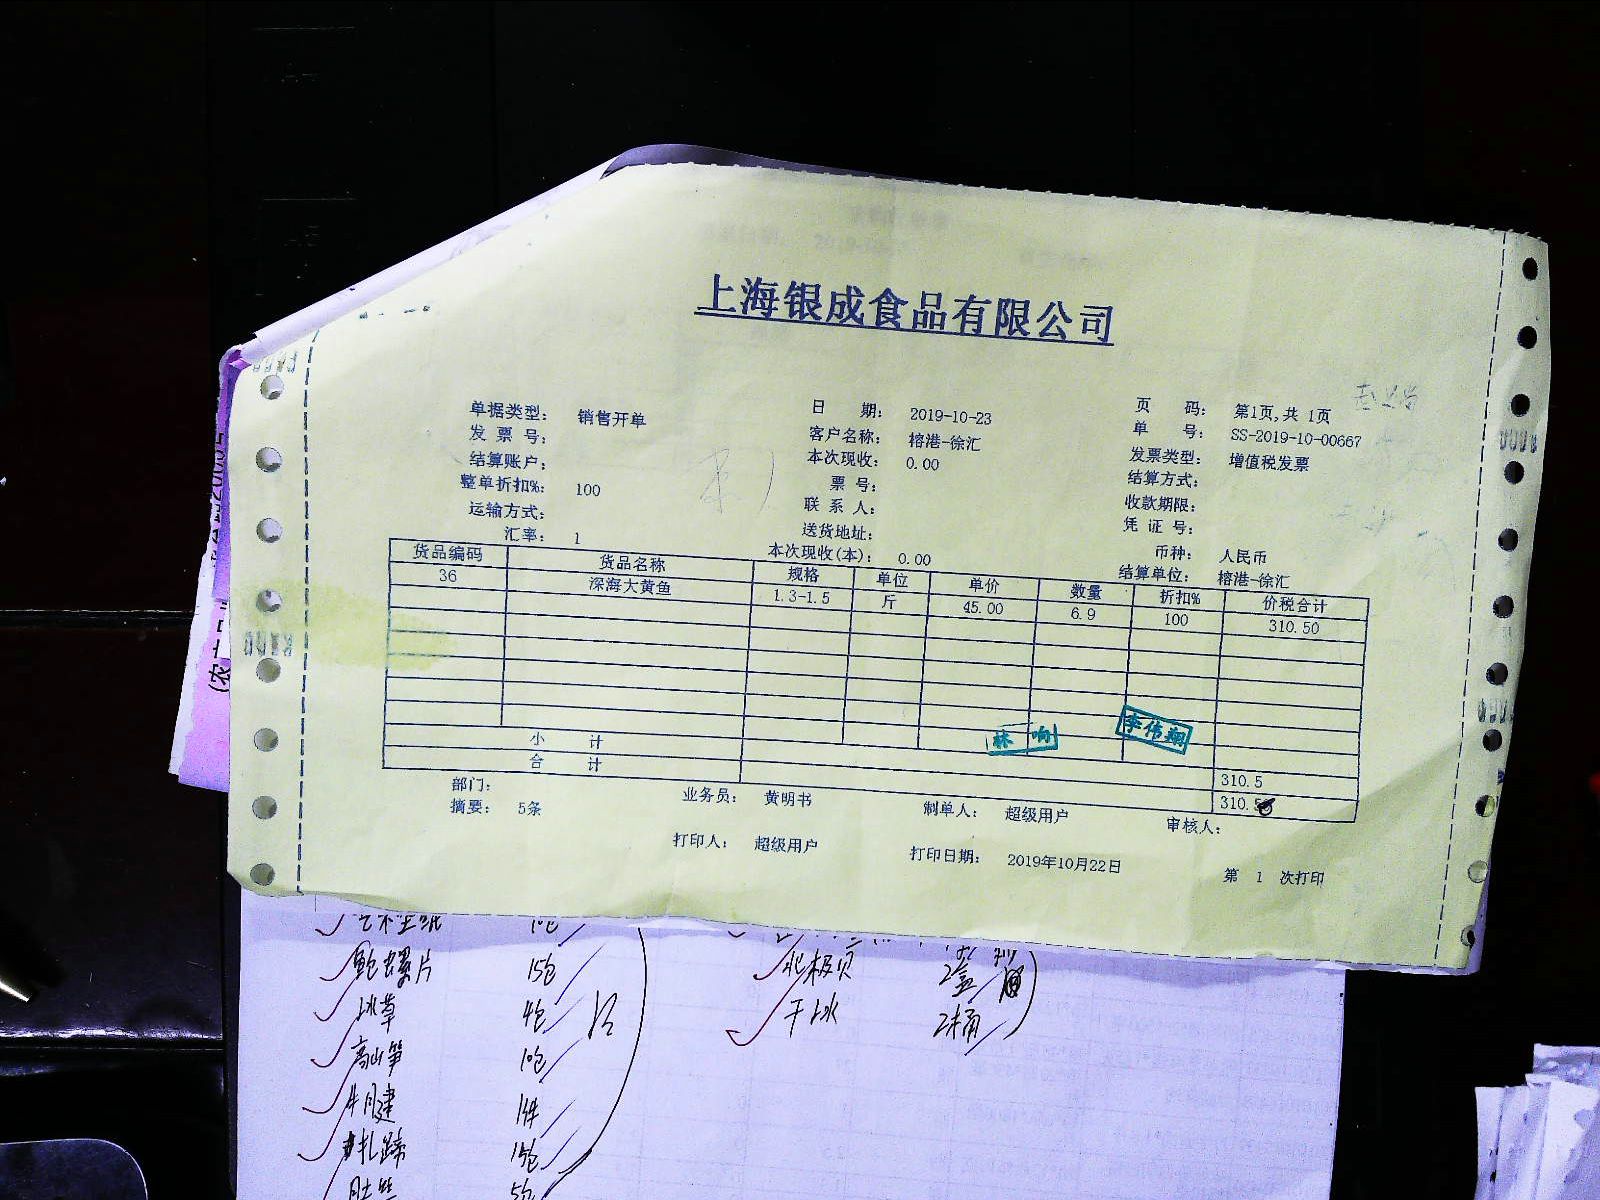 上海银成食品有限公司
单据类型： 销售开单 日 期： 2019-10-23 页 码： 第1页,共 1页
发 票 号： 客户名称： 榕港-徐汇 单 号： SS-2019-10-00667
结算账户： 本次现收： 0.00 发票类型： 增值税发票
整单折扣%： 100 票 号： 结算方式：
运输方式： 联 系 人： 收款期限：
汇率： 1 送货地址： 凭 证 号：
本次现收(本)： 0.00 币种： 人民币
结算单位： 榕港-徐汇
货品编码 货品名称 规格 单位 单价 数量 折扣% 价税合计
36 深海大黄鱼 1.3-1.5 斤 45.00 6.9 100 310.50
林 响 李伟翔
小 计 310.5
合 计 310.5
部门： 业务员： 黄明书 制单人： 超级用户 审核人：
摘要： 5条
打印人： 超级用户 打印日期： 2019年10月22日 第 1 次打印
鲍螺片 15包 北极贝 2盒
冰草 4包 干冰 2桶
高山笋 10包
牛腱 1件
扎蹄 15包
5包